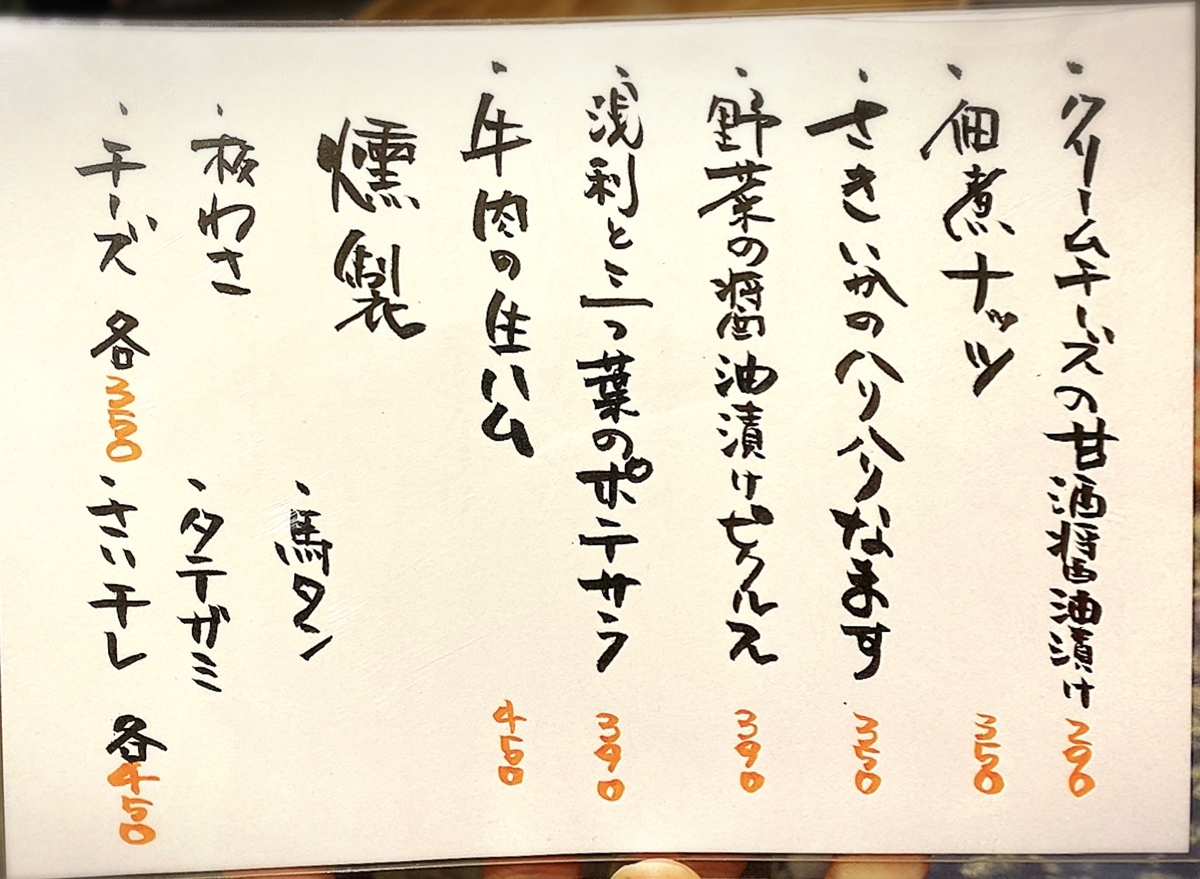 ・クリームチーズの甘酒醤油漬け 290
・佃煮ナッツ 350
・さきいかのハリハリなます 350
・野菜の醤油漬けピクルス 390
・浅利と三つ葉のポテサラ 390
・牛肉の生ハム 450
燻製
・板わさ
・チーズ 各350
・馬タン
・タテガミ
・さい干し 各450